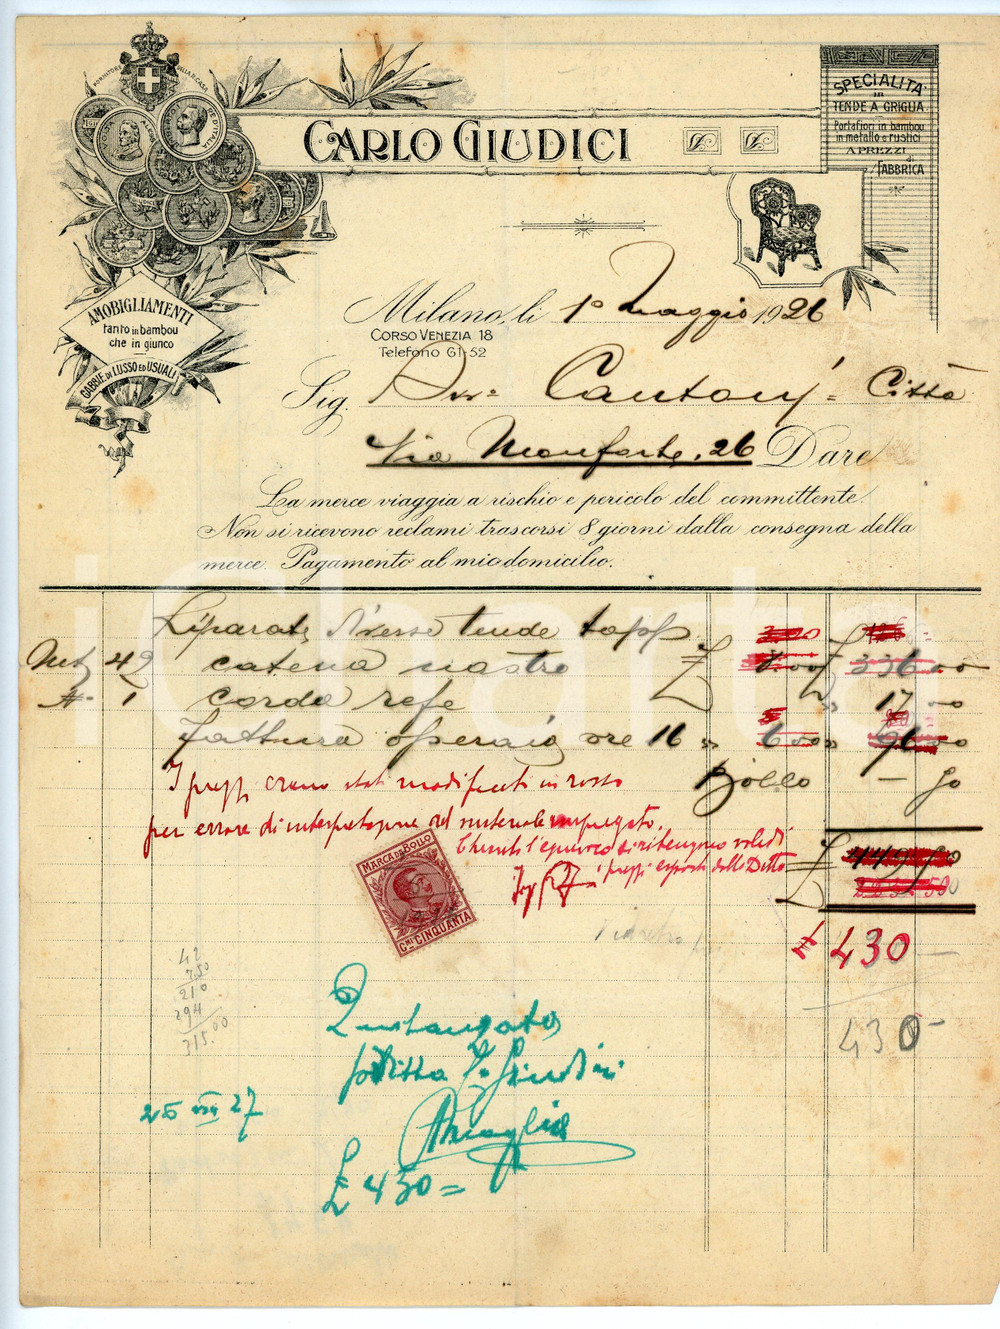 FORNITORE DELLA R. CASA
CARLO GIUDICI
SPECIALITÀ
in
TENDE A GRIGLIA
Portafiori in bambou
in metallo e rustici
A PREZZI
di
FABBRICA
AMOBIGLIAMENTI
tanto in bambou
che in giunco
GABBIE DI LUSSO ED USUALI
Milano, li 1° Maggio 1926
CORSO VENEZIA 18
Telefono 61-52
Sig. Cantoni Città
Via Monforte, 26 Dare
La merce viaggia a rischio e pericolo del committente.
Non si ricevono reclami trascorsi 8 giorni dalla consegna della
merce. Pagamento al mio domicilio.
Riparato diverse tende
42 catena nastro £ 8.00 £ 336.00
1 corda refe " 17.00
Fattura operaio ore 16 " 6.00 " 96.00
Bollo — 50
I prezzi erano stati modificati in rosso
per errore di interpretazione del materiale impiegato.
Chiarito l'equivoco si ritengono validi
i prezzi esposti dalla Ditta
£ 449.50
MARCA DA BOLLO
CMI CINQUANTA
£ 430 —
430 —
42
7.50
210
294
315.00
Quietanzato
p Ditta Giudici
25 VIII 27
£ 430 =
iCharta